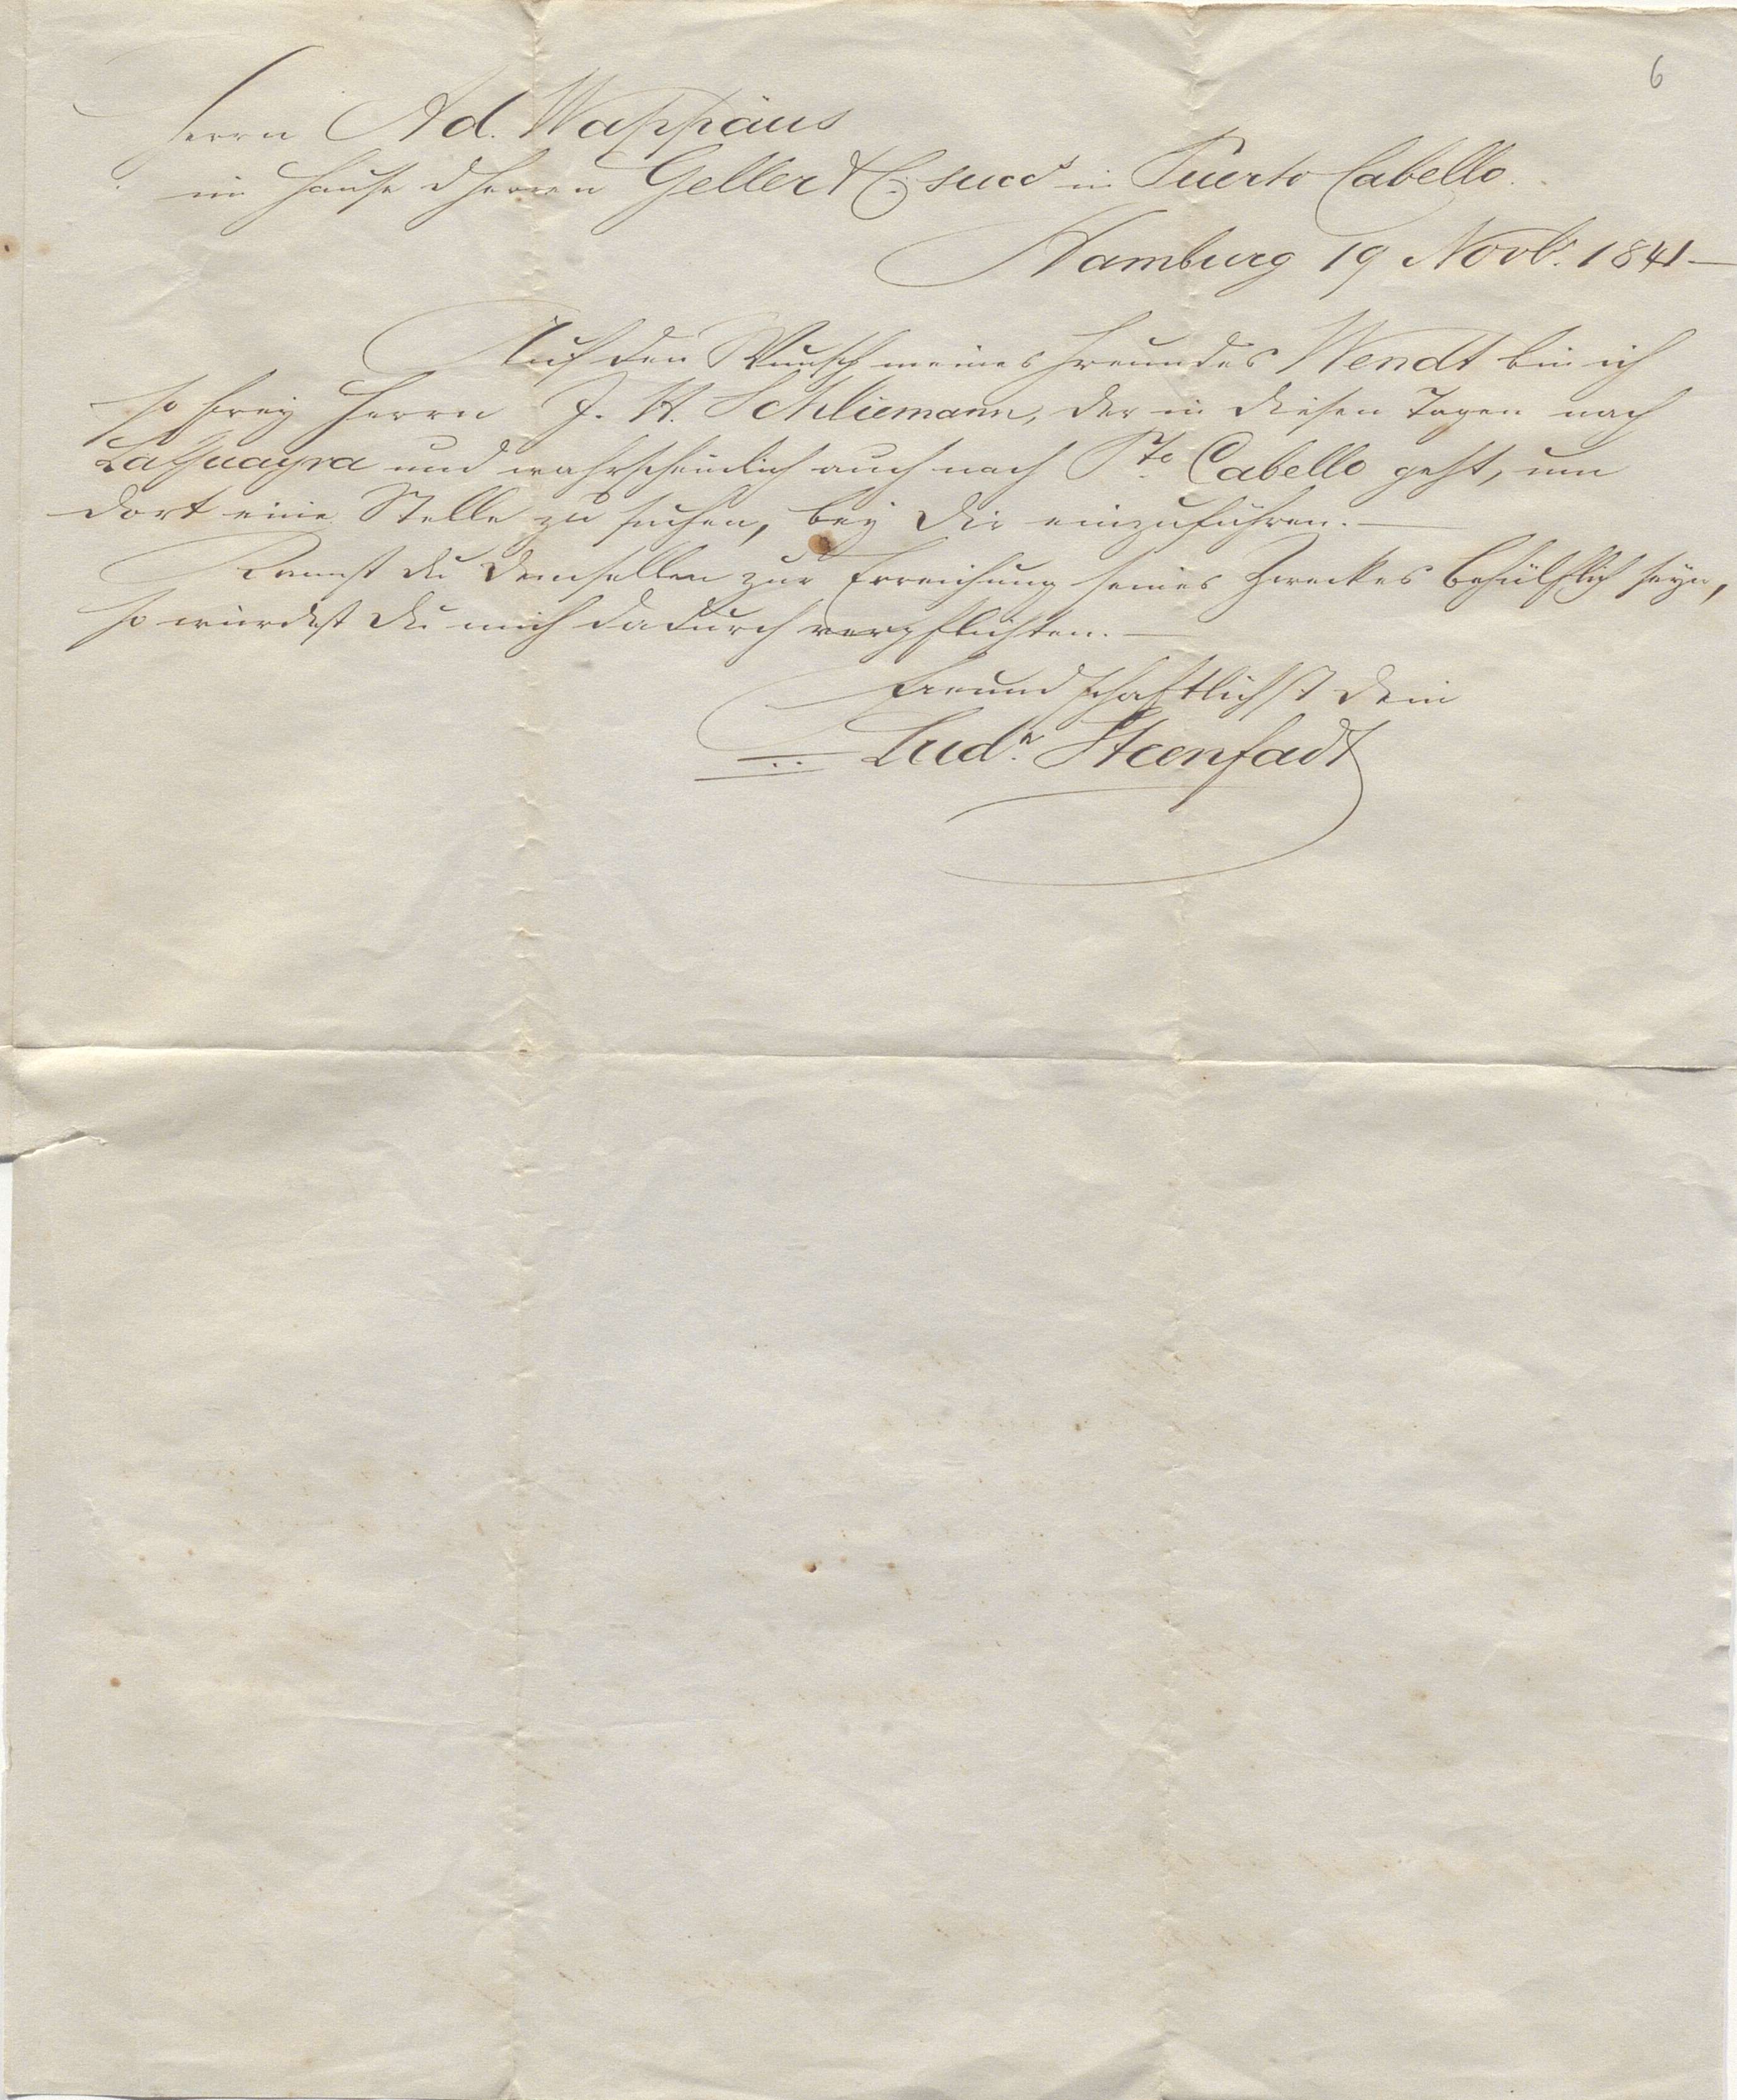 6
Herrn Ad. Wappäus
im Hause d Herren Geller & Co. succs in Puerto Cabello.
Hamburg 19 Novb. 1841 —
Auf den Wunsch meines Freundes Wendt bin ich
so frey Herrn J. H. Schliemann, der in diesen Tagen nach
LaGuayra und wahrscheinlich auch nach Pto. Cabello geht, um
dort eine Stelle zu suchen, bey Dir einzuführen. —
Kannst du demselben zur Erreichung seines Zweckes behülflich seyn,
so würdest Du mich dadurch verpflichten. —
Freundschaftlichst Dein
Ludw.